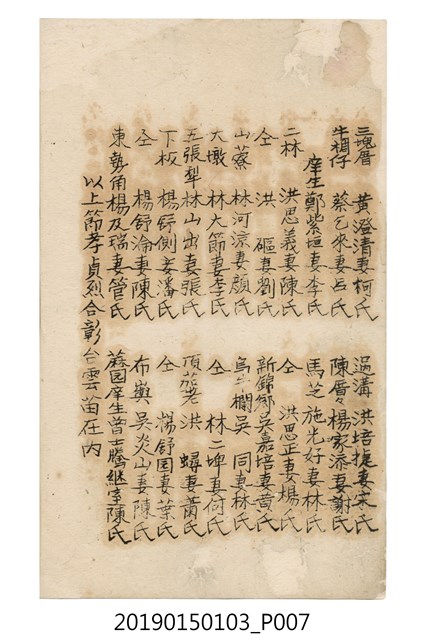 三塊厝 黃澄清妻柯氏 過溝 洪培捷妻宋氏
牛稠仔 蔡乞來妻呂氏 陳厝 楊家添妻謝氏
庠生鄭紫垣妻李氏 馬芝 施光好妻林氏
二林 洪思義妻陳氏 仝 洪思正妻楊氏
仝 洪 礳妻劉氏 新錦鄉吳嘉培妻黃氏
山藔 林河涼妻顏氏 烏牛欄吳 同妻林氏
大墩 林大節妻李氏 仝 林二埤妻何氏
五張犂林山出妻張氏 頂茄荖 洪 蟳妻蕭氏
下板 楊舒側妻潘氏 仝 楊舒園妻葉氏
仝 楊舒淪妻陳氏 布嶼 吳炎山妻陳氏
東勢角楊及瑞妻管氏 蔴园庠生曾士騰継室陳氏
以上節孝貞烈合彰台雲苗在内
20190150103_P007